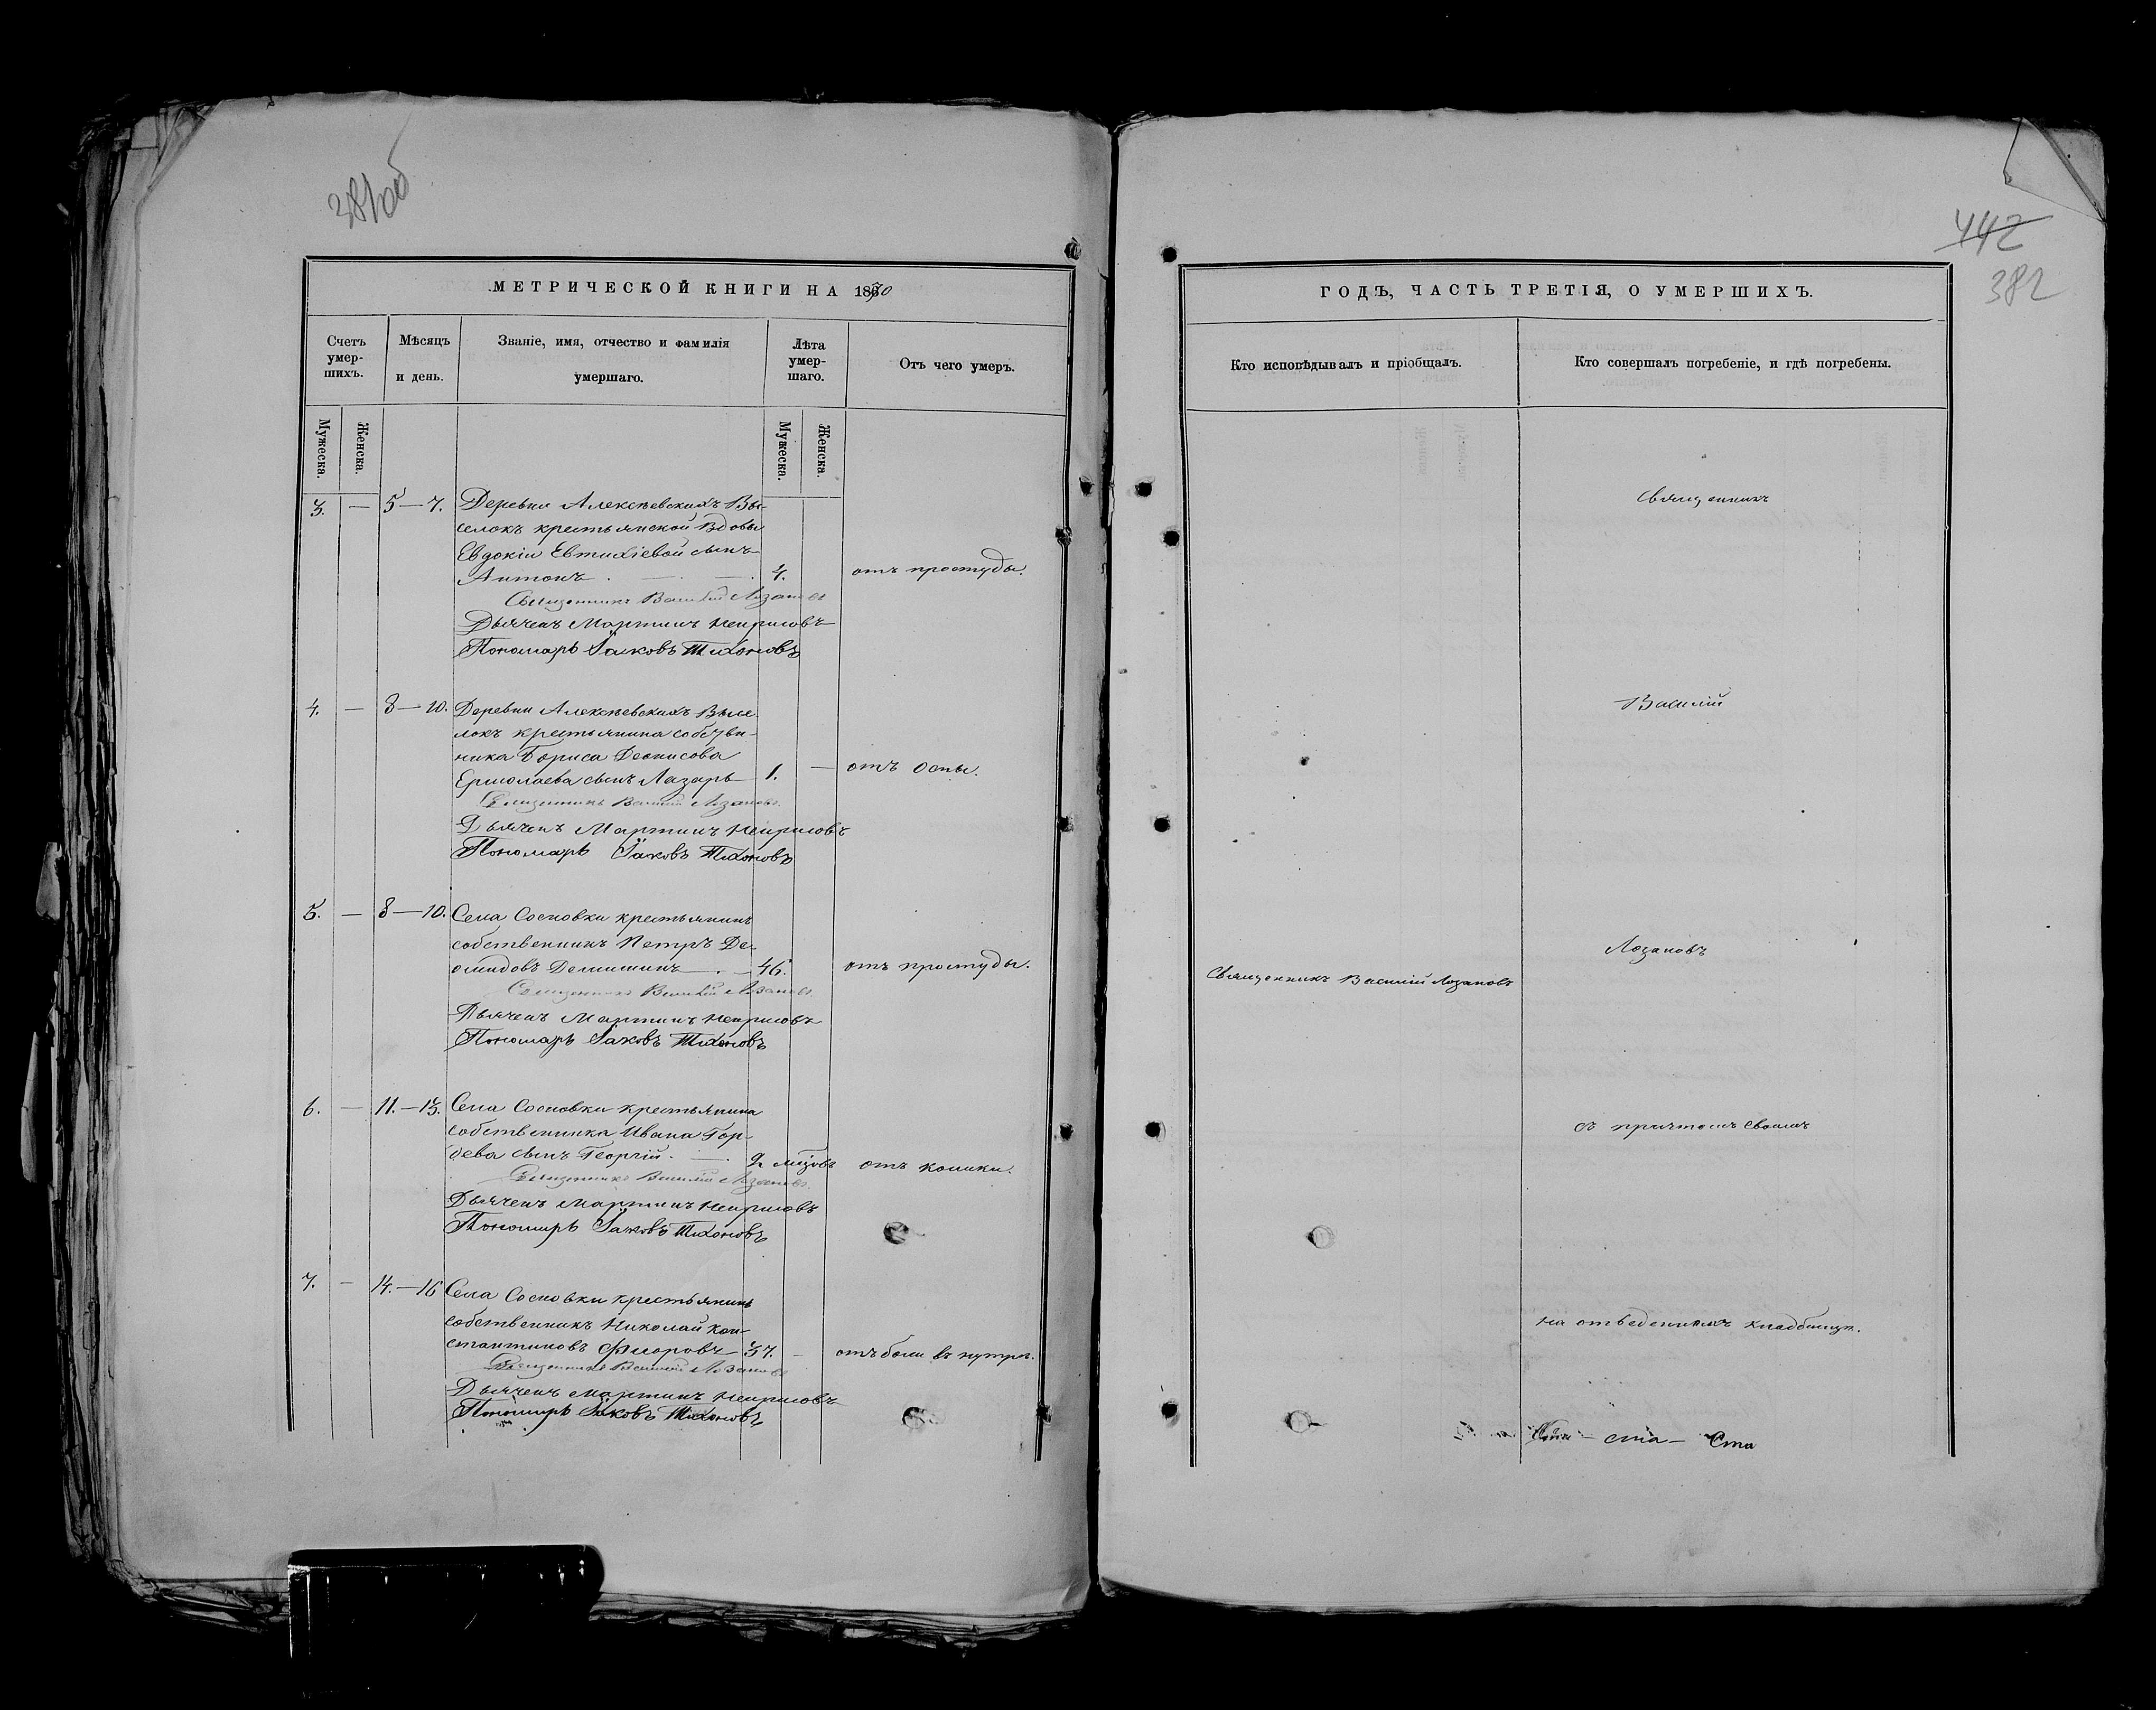 381об
МЕТРИЧЕСКОЙ КНИГИ НА 1870
Счетъ умер-шихъ.
Мѣсяцъ и день.
Званіе, имя, отчество и фамилія умершаго.
Лѣта умер-шаго.
Отъ чего умеръ.
Мужеска.
Женска.
Мужеска.
Женска.
3. — 5—7. Деревни Алексѣевскихъ Вы-
селокъ крестьянской вдовы
Евдокіи Евтихіевой сынъ
Антонъ 4. отъ простуды.
Священникъ Василій Лозановъ
Дьячекъ Мартинъ
Пономарь Іаковъ Тихоновъ
4. — 8—10. Деревни Алексѣевскихъ Высе
локъ крестьянина собстве-
ника Бориса Деонисова
Ермолаева сынъ Лазарь 1. — отъ оспы.
Священникъ Василій Лозановъ.
Дьячекъ Мартинъ
Пономарь Іаковъ Тихоновъ
5. — 8—10. Села Сосновки крестьянинъ
собственникъ Петръ Де-
омидовъ 46. отъ простуды.
Священникъ Василій Лозановъ.
Дьячекъ Мартинъ
Пономарь Іаковъ Тихоновъ
6. — 11.—13. Села Сосновки крестьянина
собственника Ивана Гор-
деева сынъ Георгій. 2 отъ колики.
Священникъ Василій Лозановъ.
Дьячекъ Мартинъ
Пономарь Іаковъ Тихоновъ
7. — 14.—16 Села Сосновки крестьянинъ
собственникъ Николай Кон-
стантиновъ Флоровъ 37. — отъ боли въ нутрѣ.
Священникъ Василій Лозановъ
Дьячекъ Мартинъ
Пономарь Іаковъ Тихоновъ
442
382
ГОДЪ, ЧАСТЬ ТРЕТІЯ, О УМЕРШИХЪ.
Кто исповѣдывалъ и пріобщалъ.
Кто совершалъ погребеніе, и гдѣ погребены.
Священникъ
Василій
Лозановъ
Священникъ Василій Лозановъ
съ причтомъ своимъ
на отведенномъ кладбищѣ.
ста — Ста